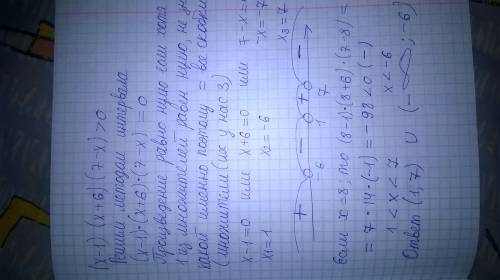 (x-1)(x+6)(7-x)>0
Решим методом интервала
(x-1)·(x+6)·(7-x)=0
Произведение равно нулю если хотя
1 из множителей равен нулю, не
какой именно поэтому = все скобки
(множители (их у нас 3)
x-1=0 или x+6=0 или 7-x=
x₁=1 x₂=-6 -x=7
x₃=7
+ - + -
-6 1 7
Если x=8, то (8-1)·(8+6)·(7-8)=
=7·14·(-1)=-98<0 (-)
1<x<7 x<-6
Ответ (1,7) ∪ (-∞;-6)